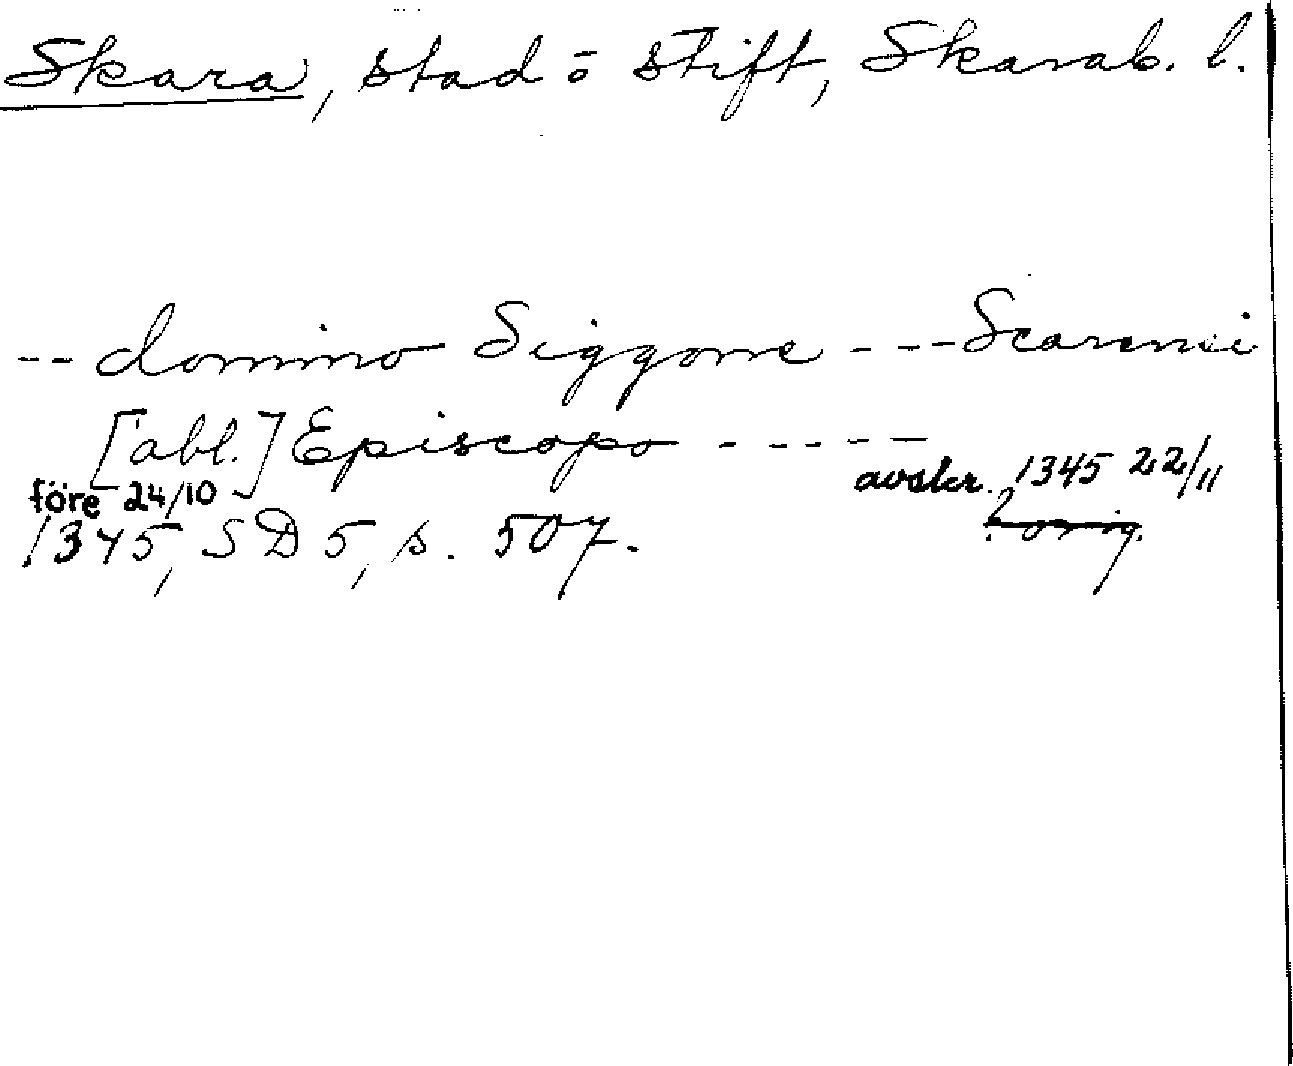 Skara, stad o stift, Skarab. l.
-- domino Siggone --- Scarensi
[abl.] Episcopo -----
före 24/10 avskr. 1345 22/11
1345, SD 5, s. 507. ? orig.